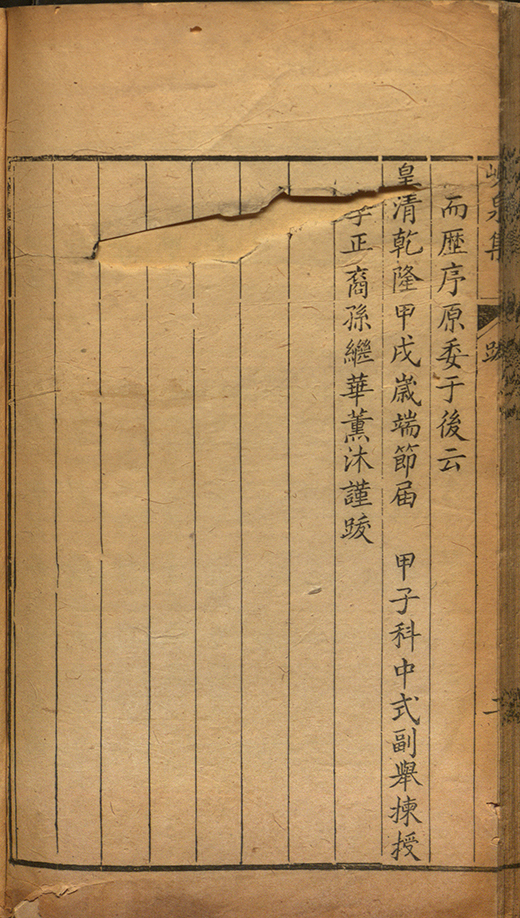 而歷序原委于後云
皇清乾隆甲戌歲端節屆　甲子科中式副舉揀授
學正裔孫繼華薰沐謹跋
峴泉集
跋
二